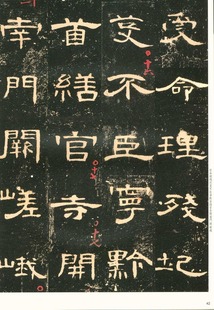 受命理殘圮
芟不臣寧黔
首繕官寺開
南門闕嵯峨